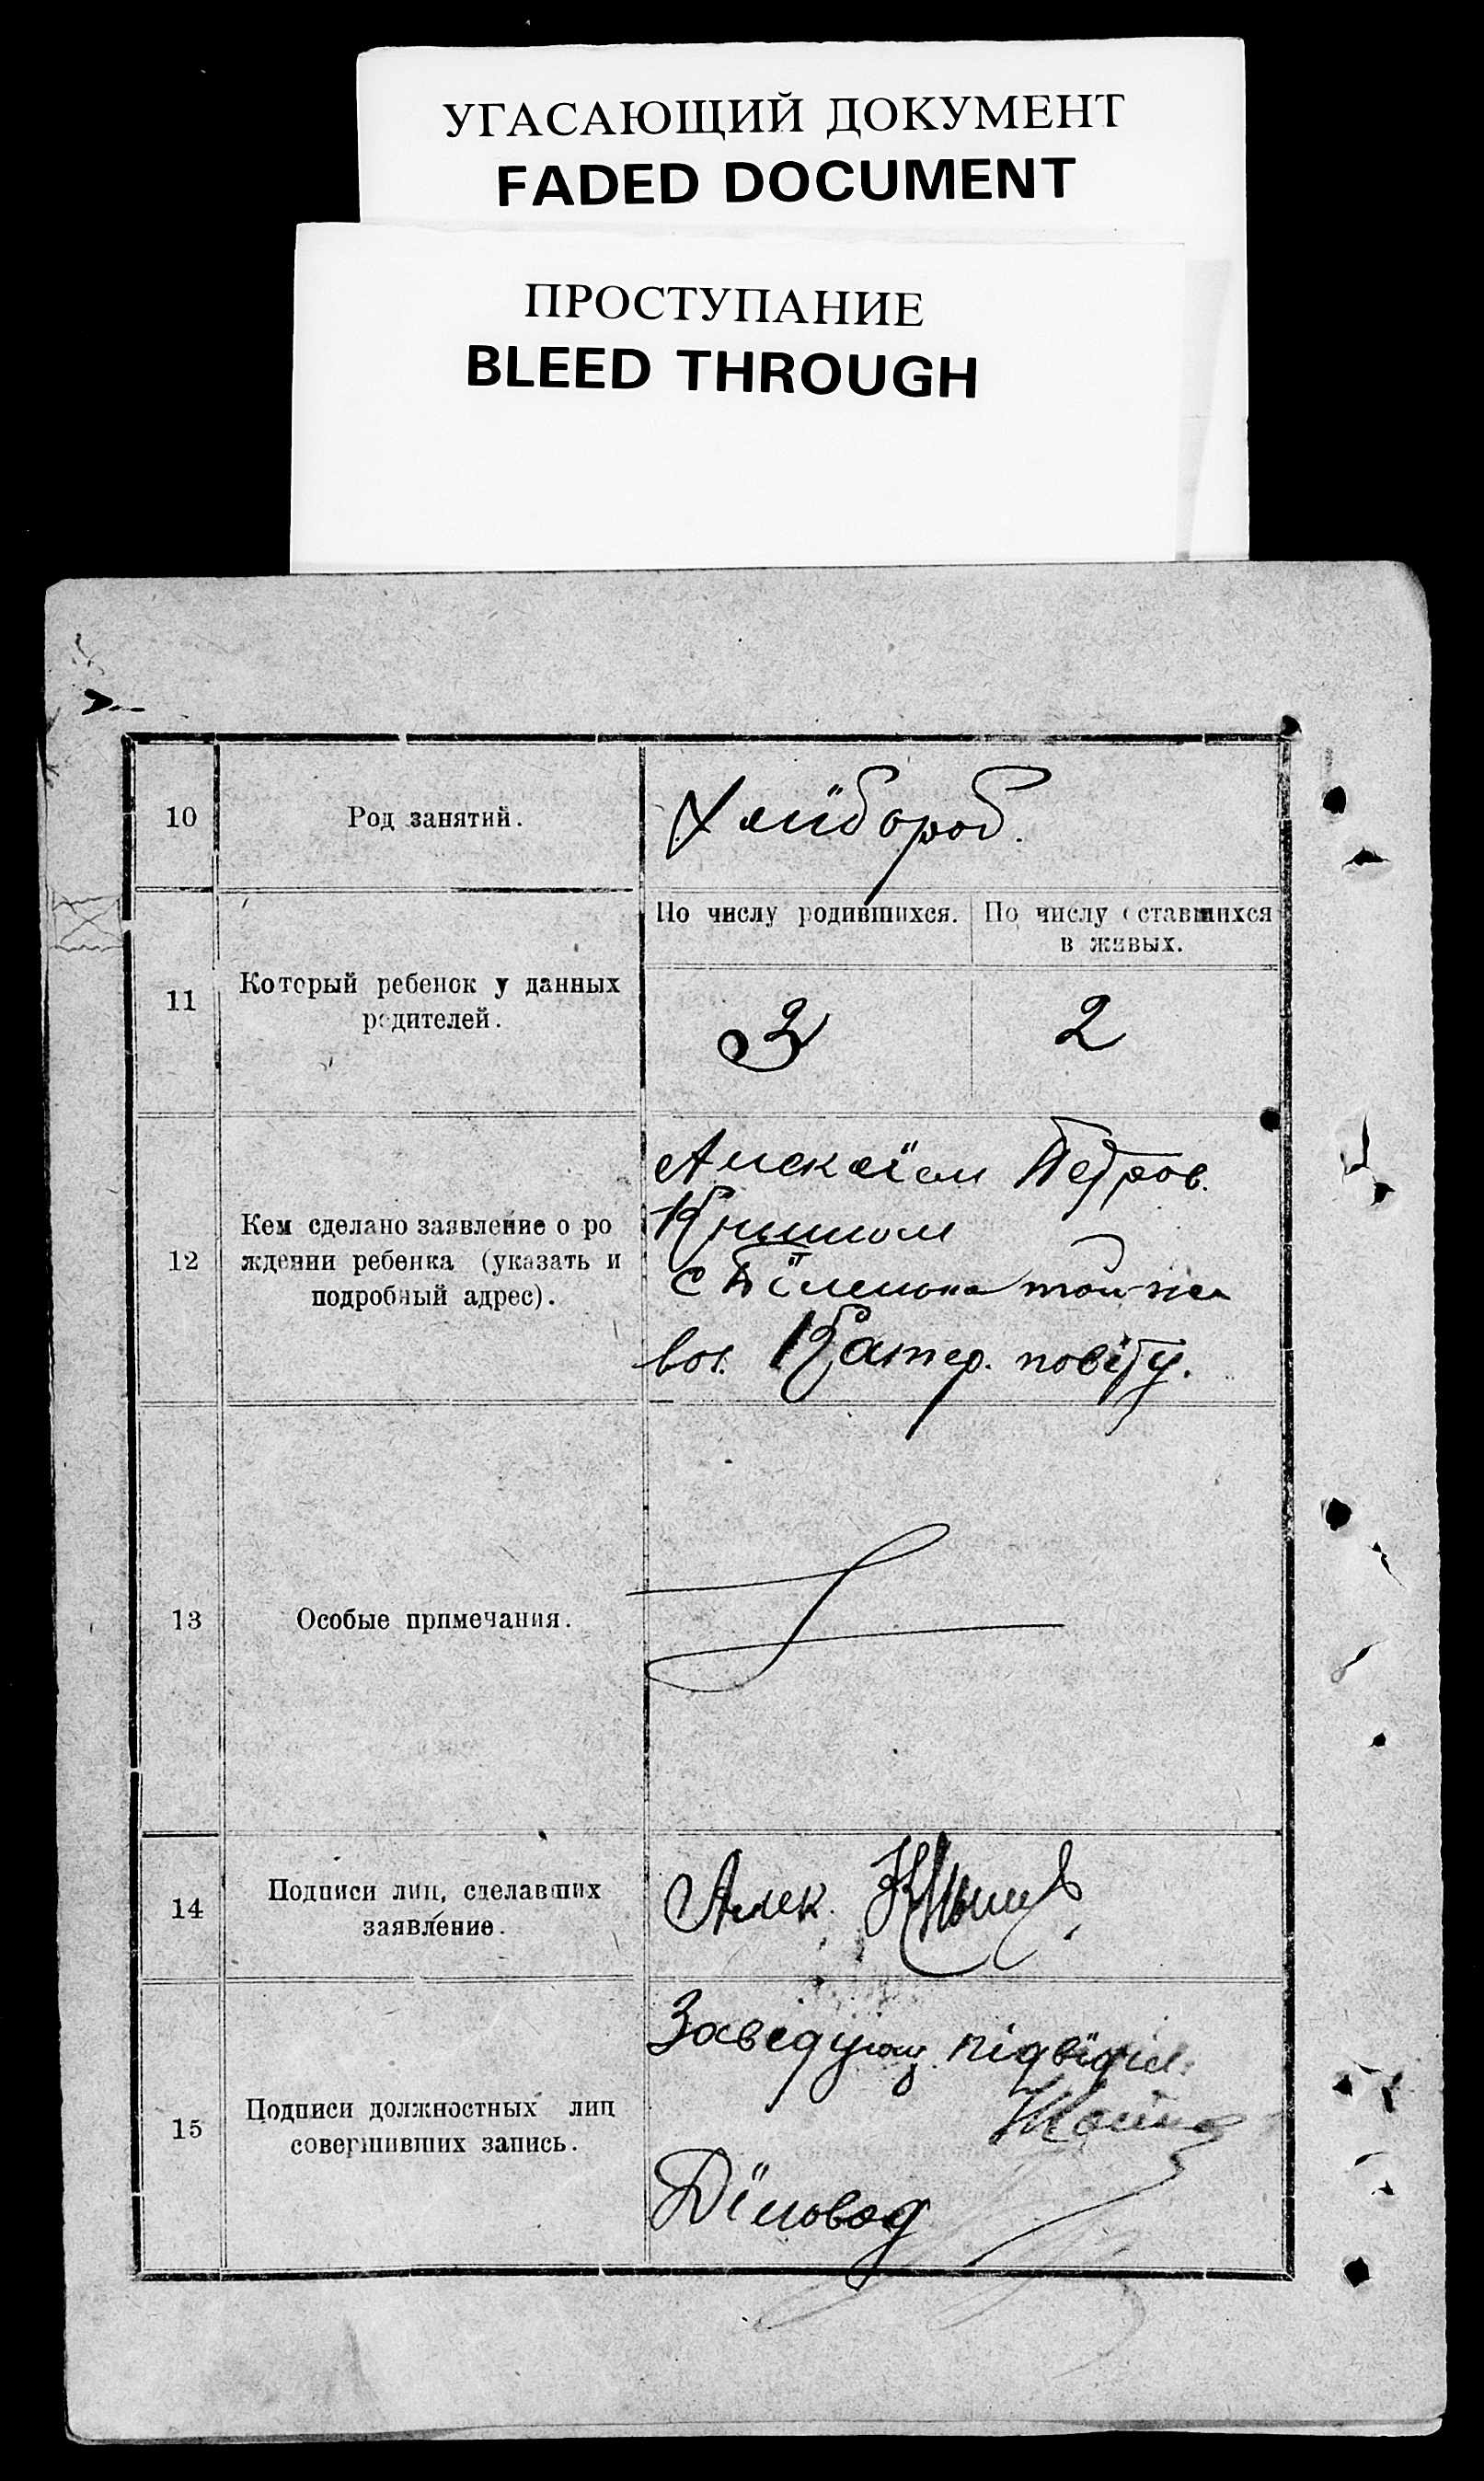 УГАСАЮЩИЙ ДОКУМЕНТ
FADED DOCUMENT
ПРОСТУПАНИЕ
BLEED THROUGH
10
Род занятий.
Хлїбороб.
11
Который ребенок у данных
родителей.
По числу родившихся.
По числу оставшихся
в живых.
3
2
12
Кем сделано заявление о ро
ждении ребенка (указать и
подробный адрес).
Петров.
с
вол. Катер. повіту.
13
Особые примечания.
14
Подписи лиц, сделавших
заявление.
Алек.
15
Подписи должностных лиц
совершивших запись.
Завідующ. підвідділ.
Дїловод